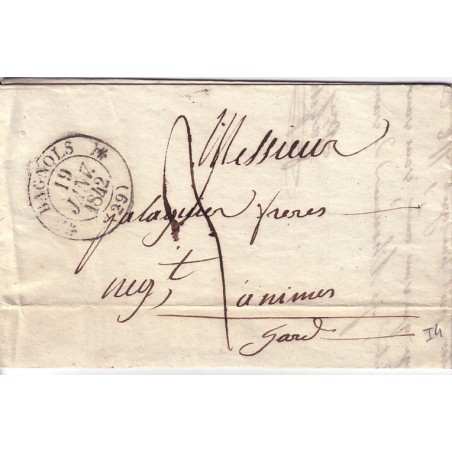 BAGNOLS
19
JANV.
1842
(29)
Messieur
frères
neg.t à nimes
Gard
I4